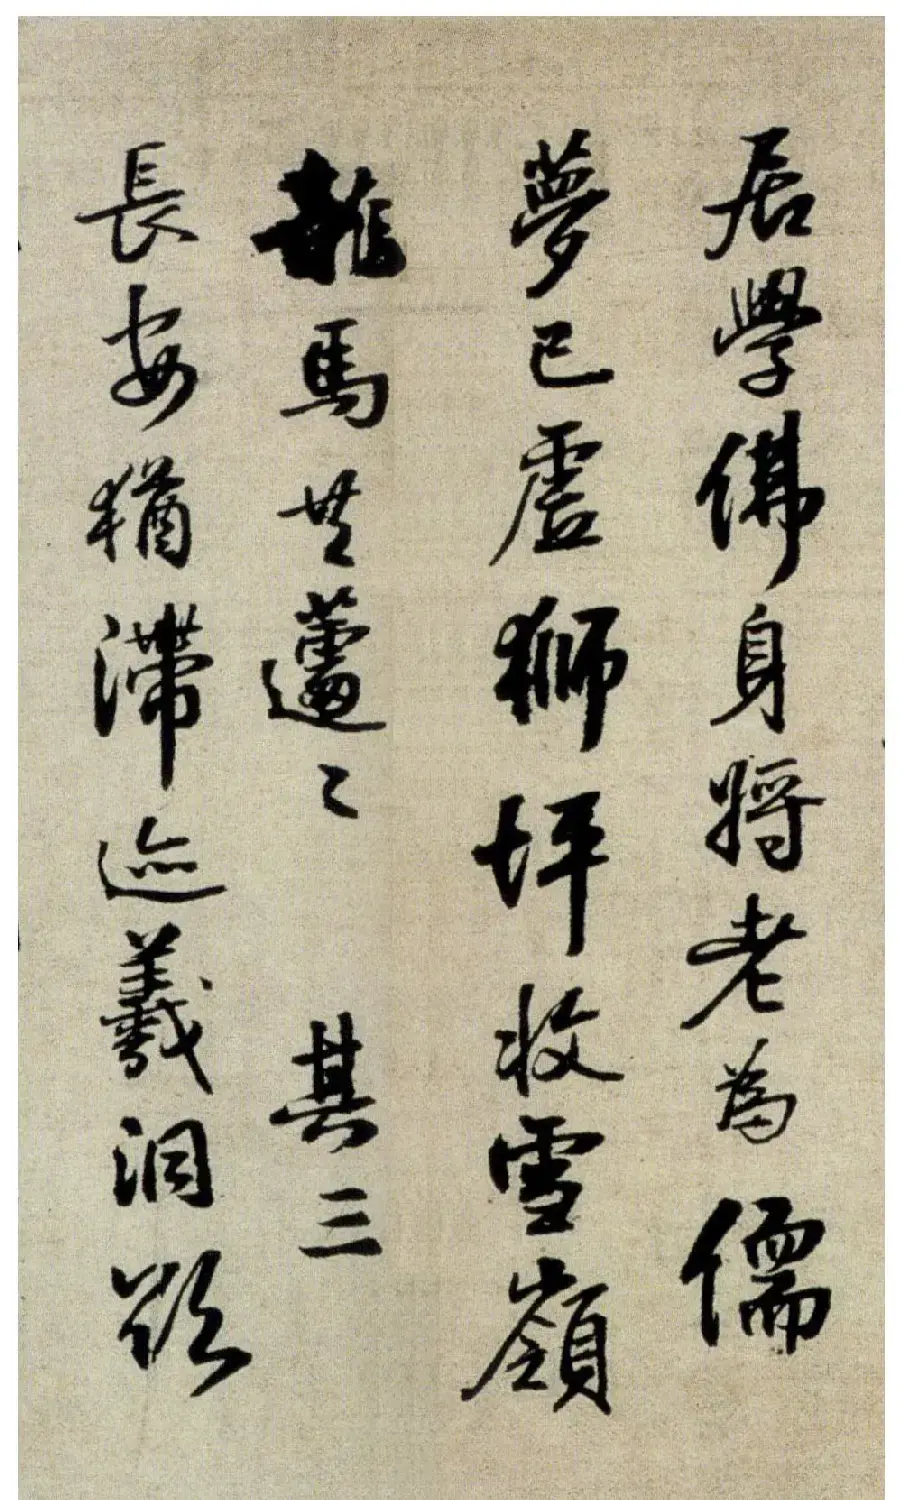 居學佛身將老為儒
夢已虛獅坪收雪嶺
龍馬共蘧〻 其三
長安猶滯迹羲洞欲